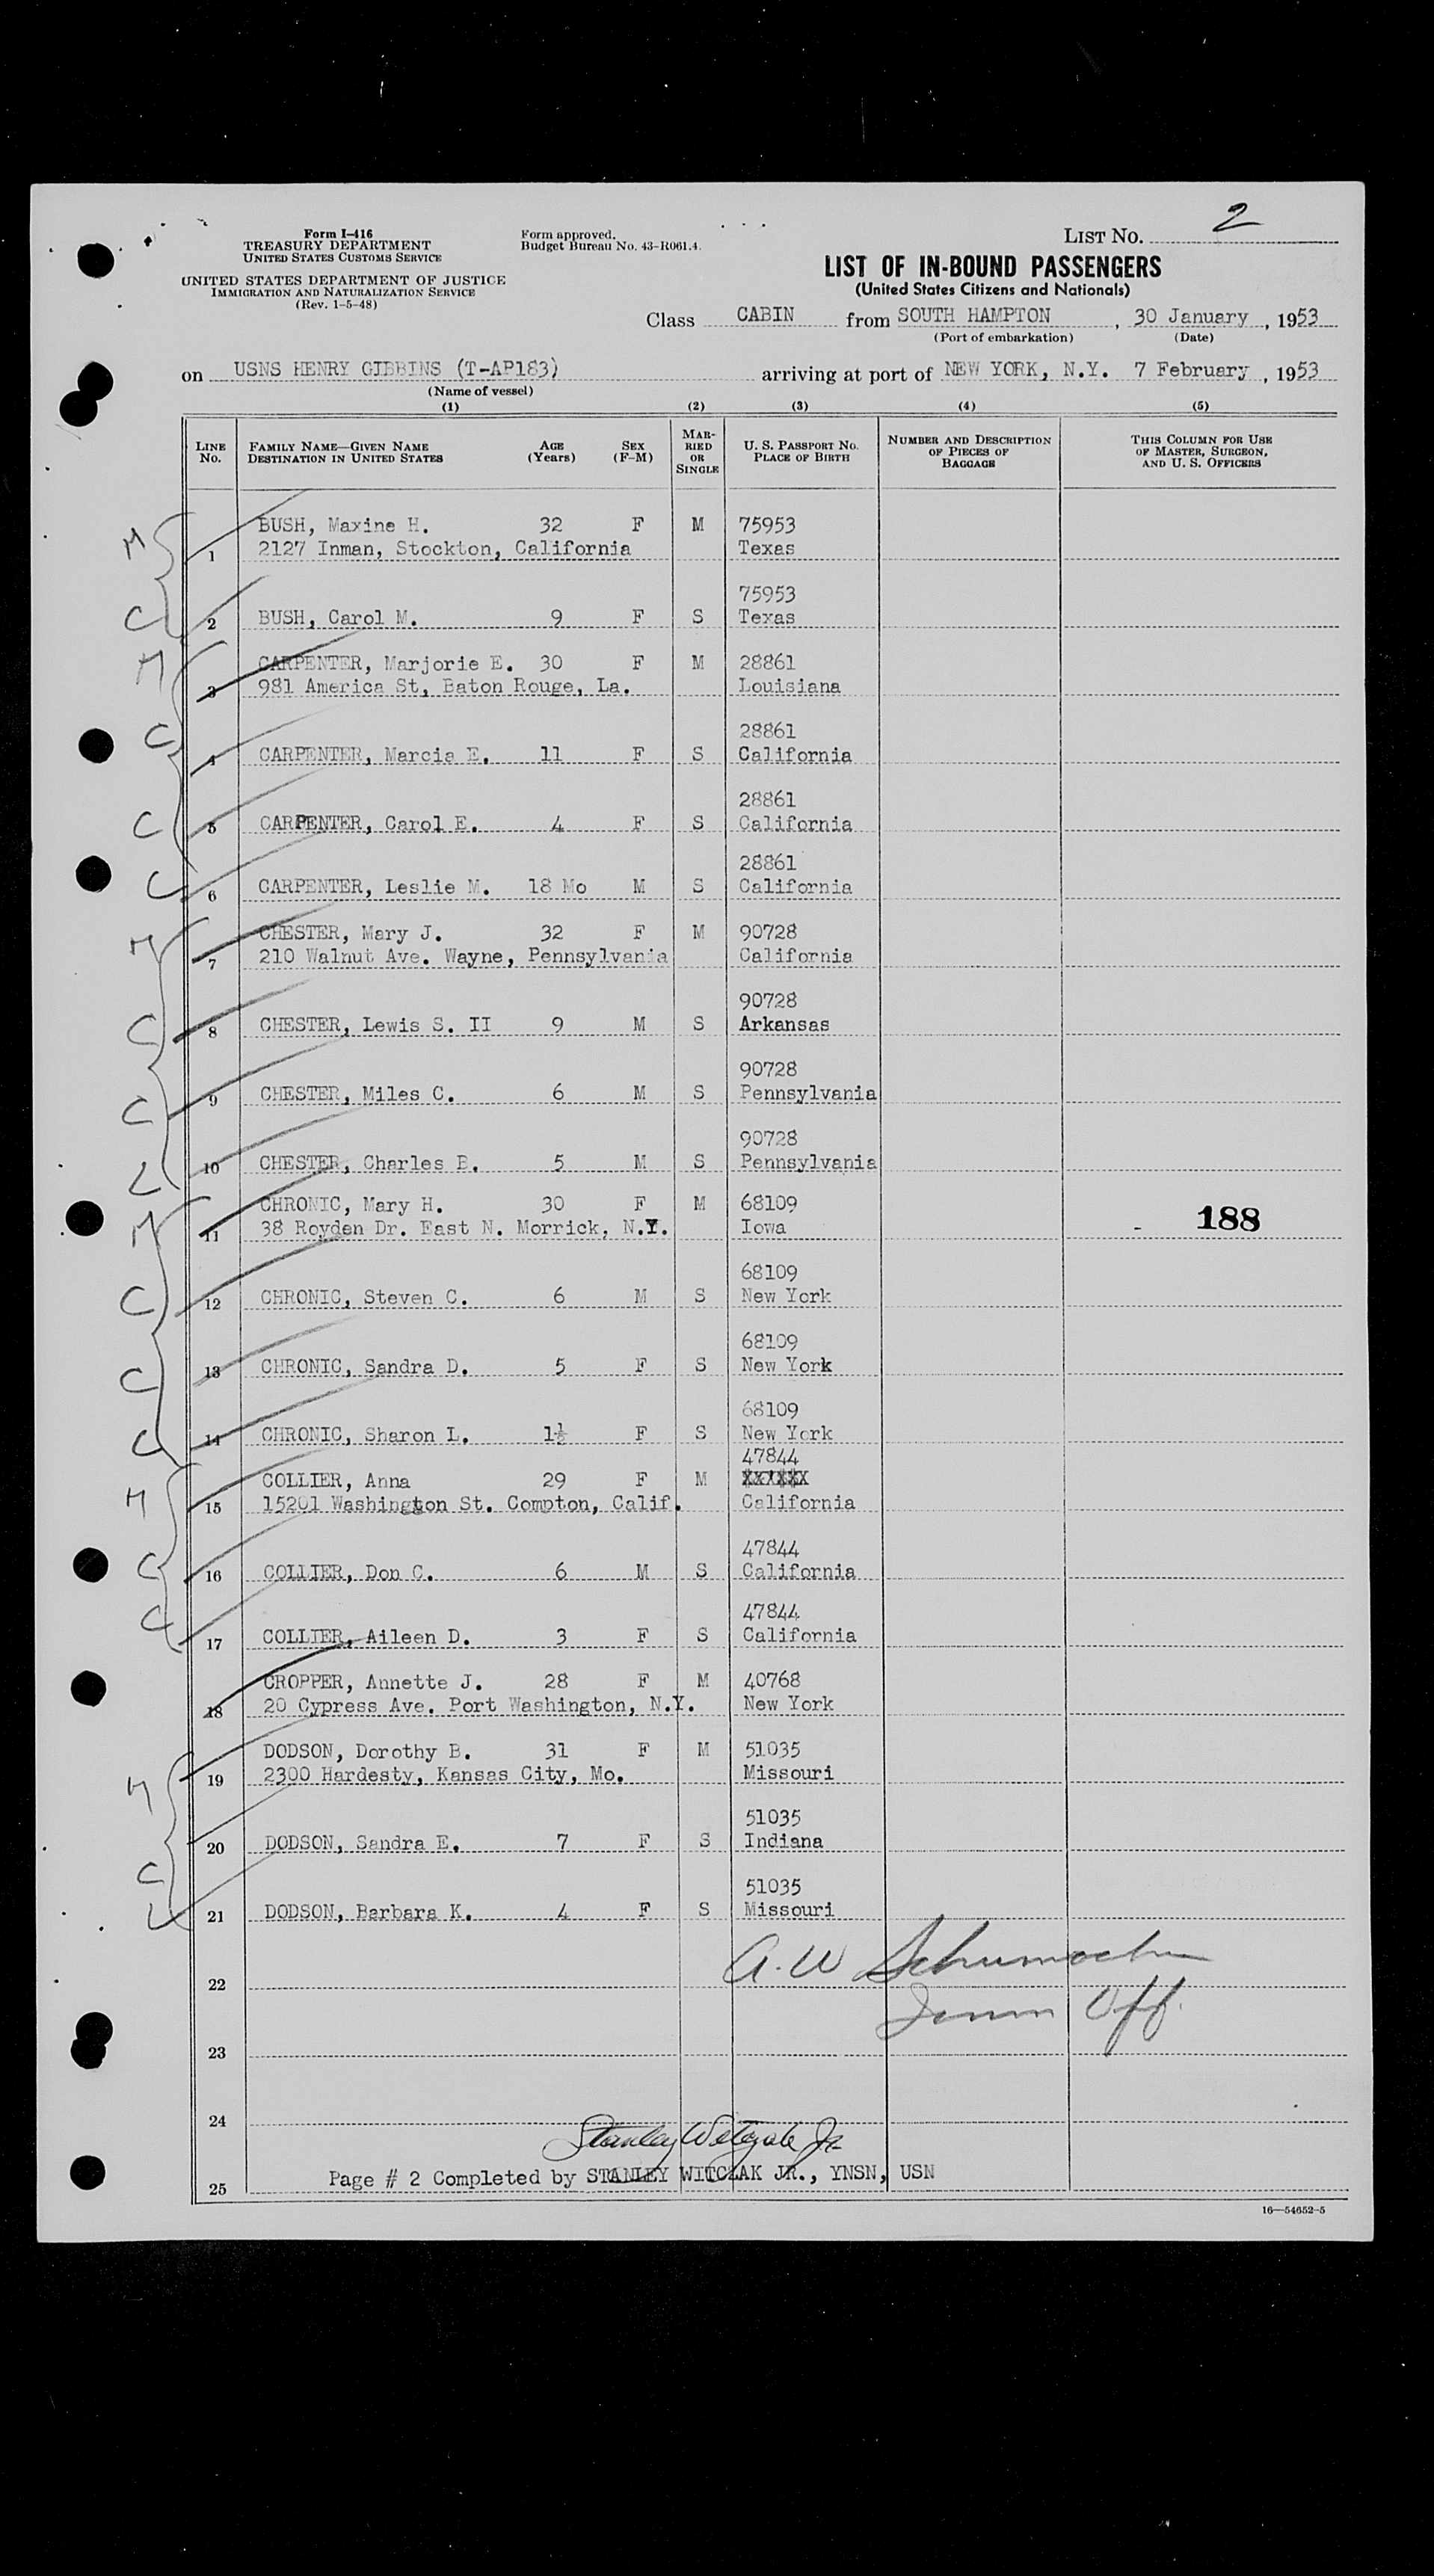 Form I-416
TREASURY DEPARTMENT
UNITED STATES CUSTOMS SERVICE
UNITED STATES DEPARTMENT OF JUSTICE
IMMIGRATION AND NATURALIZATION SERVICE
(Rev. 1-5-48)
Form approved.
Budget Bureau No. 43-R061.4.
LIST NO. 2
LIST OF IN-BOUND PASSENGERS
(United States Citizens and Nationals)
Class CABIN from SOUTH HAMPTON, 30 January, 1953
(Port of embarkation) (Date)
on USNS HENRY GIBBINS (T-AP183) arriving at port of NEW YORK, N.Y. 7 February, 1953
(Name of vessel)
(1) (2) (3) (4) (5)
LINE NO. FAMILY NAME—GIVEN NAME DESTINATION IN UNITED STATES AGE (Years) SEX (F-M) MARRIED OR SINGLE U. S. PASSPORT NO. PLACE OF BIRTH NUMBER AND DESCRIPTION OF PIECES OF BAGGAGE THIS COLUMN FOR USE OF MASTER, SURGEON, AND U. S. OFFICERS
M BUSH, Maxine H. 32 F M 75953
1 2127 Inman, Stockton, California Texas
75953
C 2 BUSH, Carol M. 9 F S Texas
M CARPENTER, Marjorie E. 30 F M 28861
3 981 America St, Baton Rouge, La. Louisiana
28861
C 4 CARPENTER, Marcia E. 11 F S California
28861
C 5 CARPENTER, Carol E. 4 F S California
28861
C 6 CARPENTER, Leslie M. 18 Mo M S California
M CHESTER, Mary J. 32 F M 90728
7 210 Walnut Ave. Wayne, Pennsylvania California
90728
C 8 CHESTER, Lewis S. II 9 M S Arkansas
90728
C 9 CHESTER, Miles C. 6 M S Pennsylvania
90728
C 10 CHESTER, Charles B. 5 M S Pennsylvania
M CHRONIC, Mary H. 30 F M 68109
11 38 Royden Dr. East N. Morrick, N.Y. Iowa - 188
68109
C 12 CHRONIC, Steven C. 6 M S New York
68109
C 13 CHRONIC, Sandra D. 5 F S New York
68109
C 14 CHRONIC, Sharon L. 1½ F S New York
47844
M COLLIER, Anna 29 F M XXXXXX
15 15201 Washington St. Compton, Calif. California
47844
C 16 COLLIER, Don C. 6 M S California
47844
C 17 COLLIER, Aileen D. 3 F S California
CROPPER, Annette J. 28 F M 40768
18 20 Cypress Ave. Port Washington, N.Y. New York
DODSON, Dorothy B. 31 F M 51035
M 19 2300 Hardesty, Kansas City, Mo. Missouri
51035
C 20 DODSON, Sandra E. 7 F S Indiana
51035
C 21 DODSON, Barbara K. 4 F S Missouri
A. W Schumacher
22
Imm Off.
23
24
Stanley Witczak Jr
25 Page # 2 Completed by STANLEY WITCZAK JR., YNSN, USN
16—54652-5